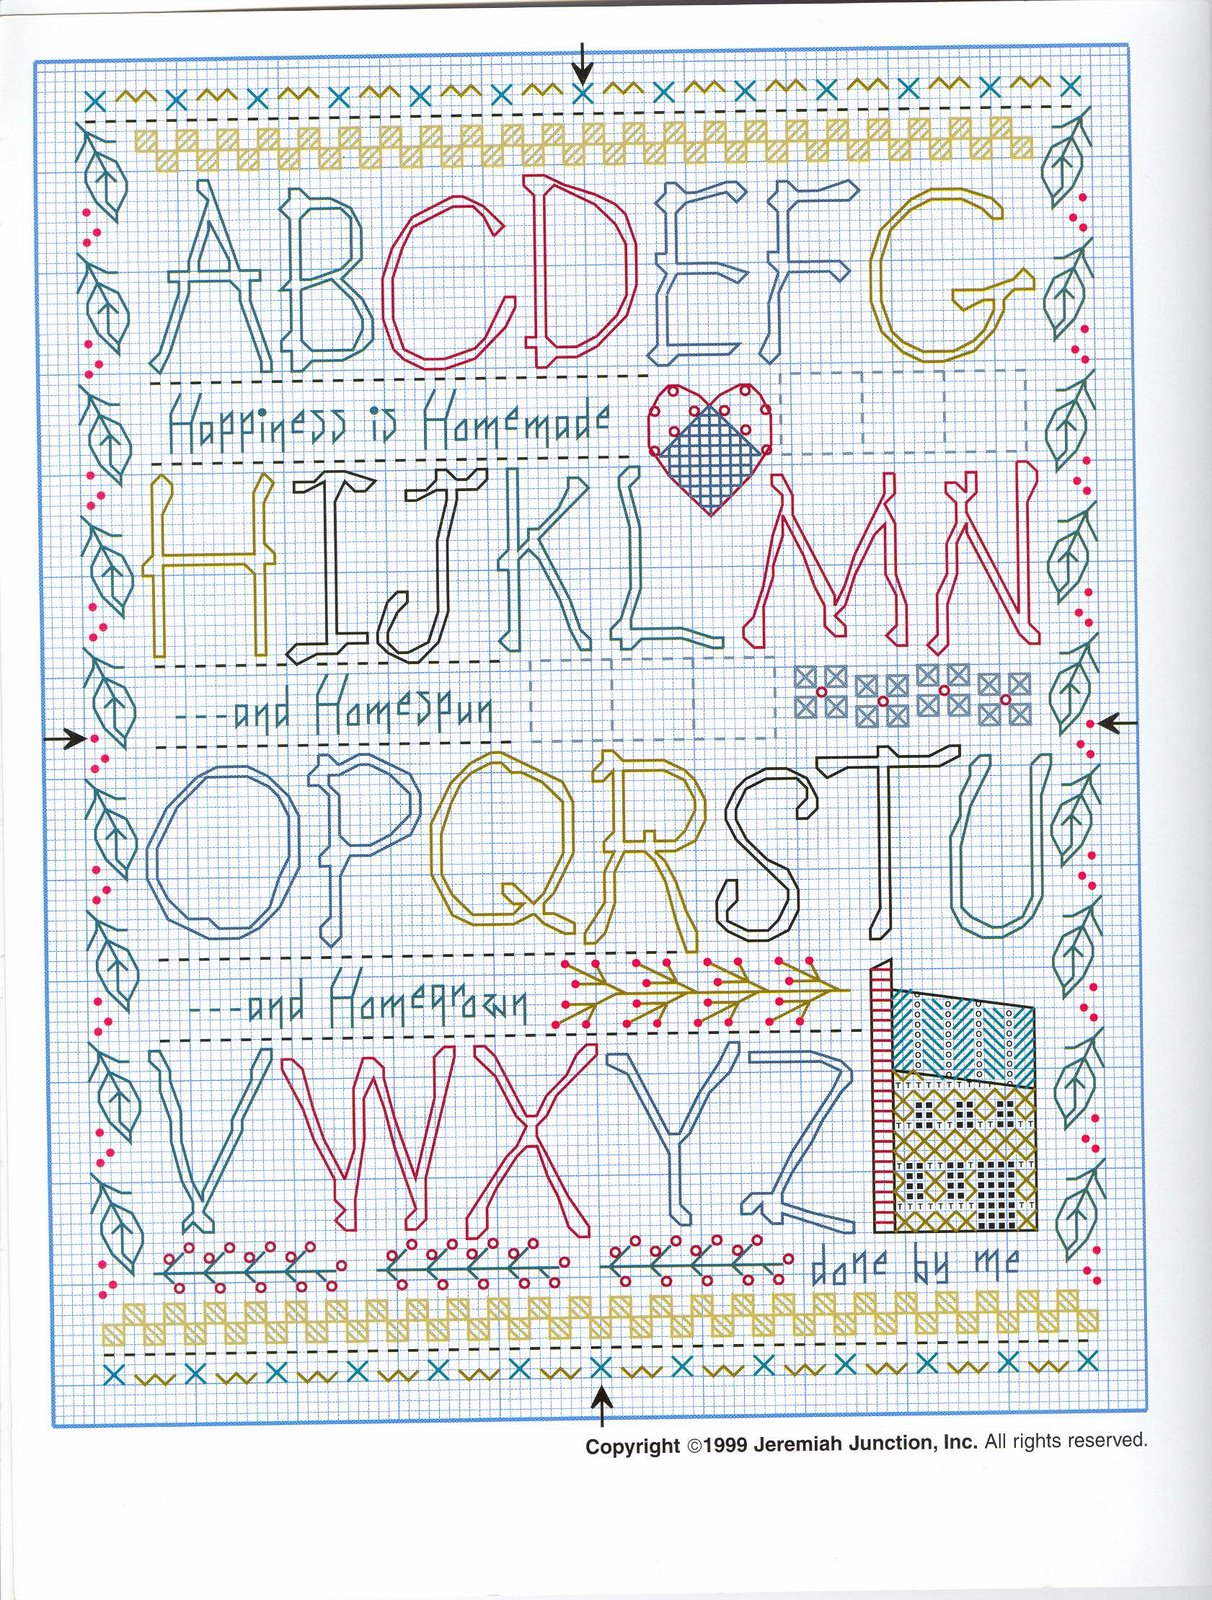 ABCDEFG
Happiness is Homemade
HIJKLMN
---and Homespun
OPQRSTU
---and Homegrown
VWXYZ
done by me
Copyright ©1999 Jeremiah Junction, Inc. All rights reserved.